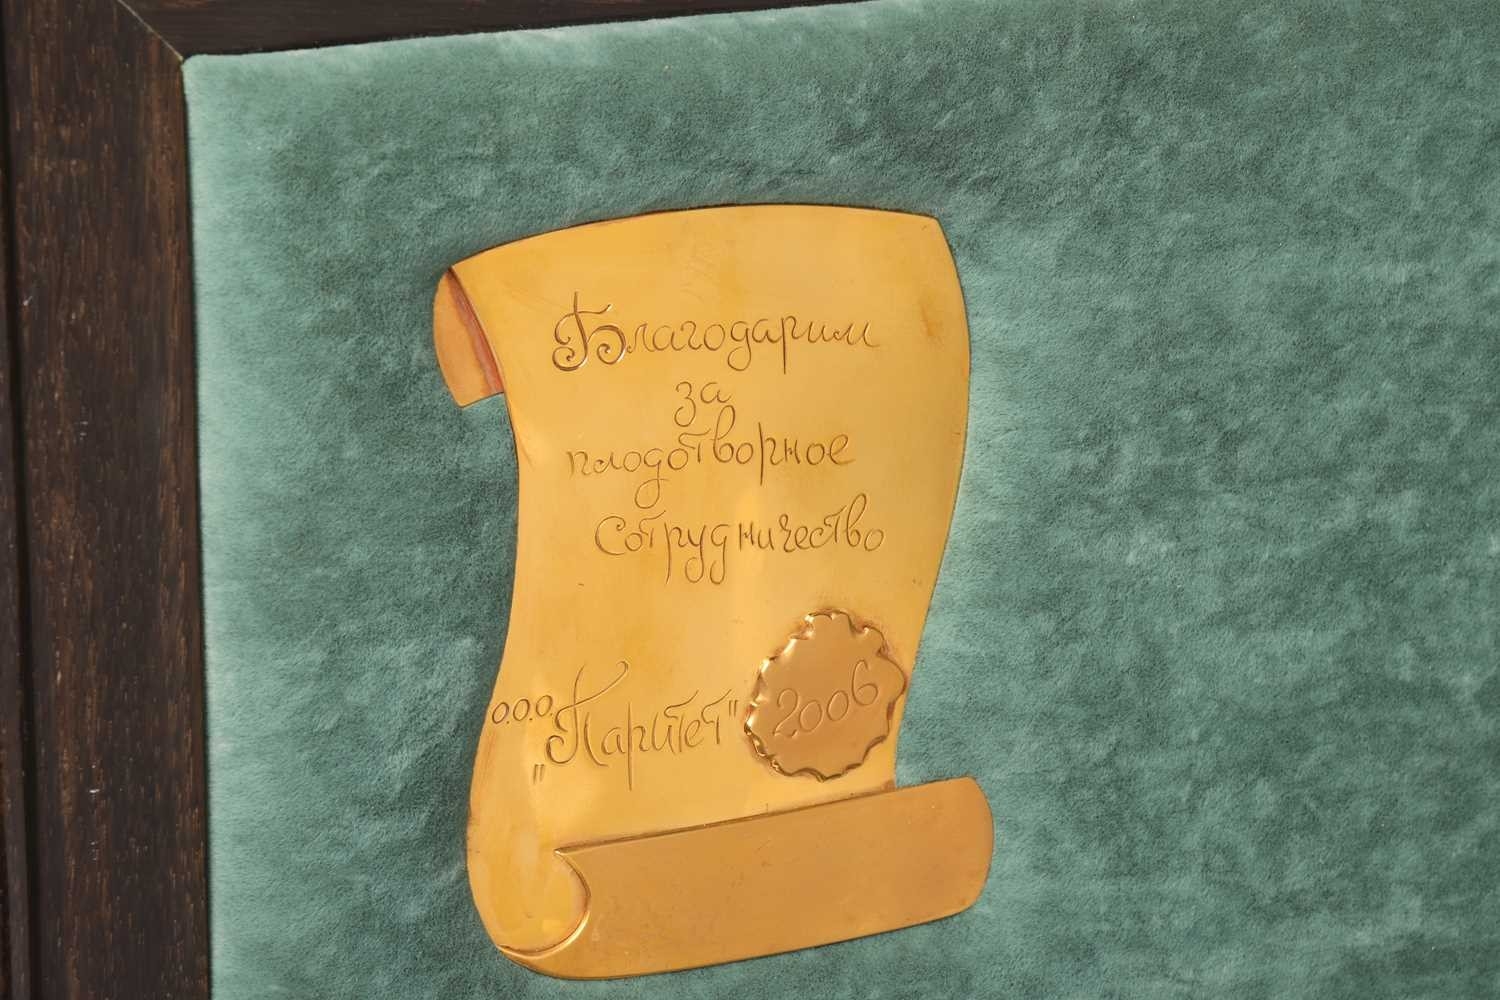 Благодарим
за
плодотворное
сотрудничество
О.О.О. „Паритет"
2006